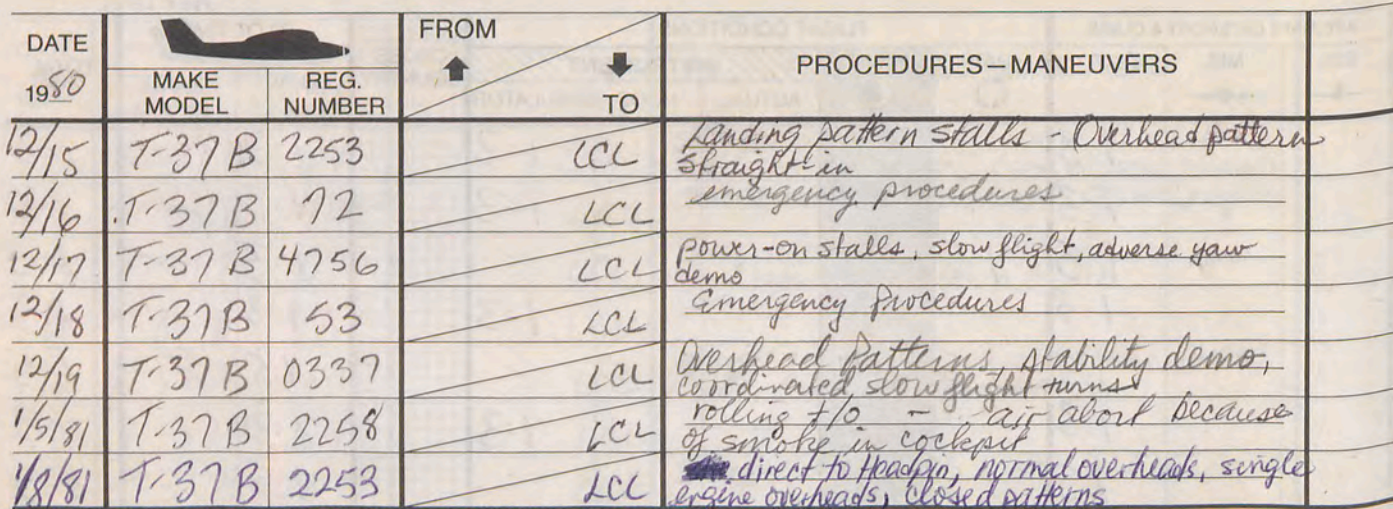 DATE
1980
MAKE MODEL
REG. NUMBER
FROM
TO
PROCEDURES—MANEUVERS
12/15 T-37B 2253 LCL Landing pattern stalls - Overhead pattern
straight-in
12/16 T-37B 72 LCL emergency procedures
12/17 T-37B 4756 LCL power-on stalls, slow flight, adverse yaw
demo
12/18 T-37B 53 LCL Emergency Procedures
12/19 T-37B 0337 LCL Overhead Patterns, stability demo,
coordinated slow flight turns
1/5/81 T-37B 2258 LCL rolling t/o - air abort because
of smoke in cockpit
1/8/81 T-37B 2253 LCL direct to Headpin, normal overheads, single
engine overheads, closed patterns